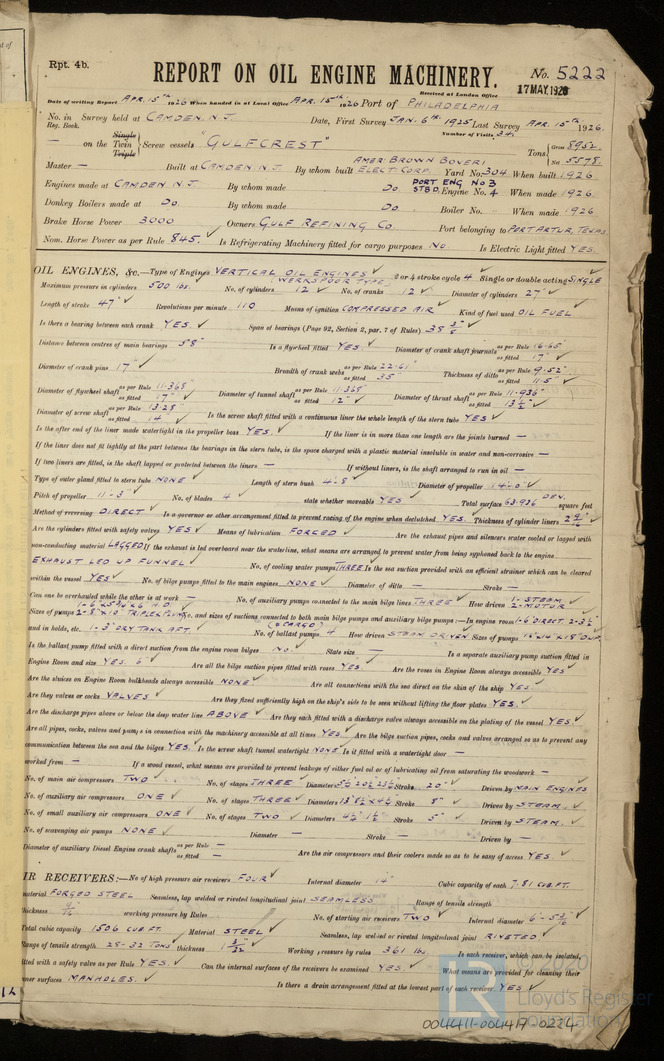 Rpt. 4b.
REPORT ON OIL ENGINE MACHINERY.
No. 5222
Received at London Office 17 MAY. 1926
Date of writing Report APR. 15TH 1926 When handed in at Local Office APR. 15TH. 1926 Port of PHILADELPHIA
No. in Survey held at CAMDEN N.J. Date, First Survey JAN. 6TH. 1925 Last Survey APR. 15TH 1926.
Reg. Book. Number of Visits 34.
— on the Single Twin Triple Screw vessels "GULFCREST" Tons Gross 8952. Net 5578.
Master — Built at CAMDEN N.J. By whom built AMER. BROWN BOVERI ELECT. CORP. Yard No. 304 When built 1926
Engines made at CAMDEN. N.J. By whom made Do PORT ENG No 3 STBD. Engine No. 4 When made 1926
Donkey Boilers made at Do. By whom made Do Boiler No. - When made 1926
Brake Horse Power 3000 Owners GULF REFINING Co. Port belonging to PORT ARTUR, TEXAS
Nom. Horse Power as per Rule 845. Is Refrigerating Machinery fitted for cargo purposes No. Is Electric Light fitted YES.
OIL ENGINES, &c.—Type of Engines VERTICAL OIL ENGINES (WERKSPOOR TYPE) 2 or 4 stroke cycle 4 Single or double acting SINGLE
Maximum pressure in cylinders 500 lbs. No. of cylinders 12 No. of cranks 12 Diameter of cylinders 27"
Length of stroke 47" Revolutions per minute 110 Means of ignition COMPRESSED AIR Kind of fuel used OIL FUEL
Is there a bearing between each crank YES. Span of bearings (Page 92, Section 2, par. 7 of Rules) 38
Distance between centres of main bearings 58" Is a flywheel fitted YES. Diameter of crank shaft journals as per Rule 16.65 as fitted 17"
Diameter of crank pins 17" Breadth of crank webs as per Rule 22.61 as fitted 35" Thickness of ditto as per Rule 9.52 as fitted 11.5"
Diameter of flywheel shaft as per Rule 11.365 as fitted 17" Diameter of tunnel shaft as per Rule 11.365 as fitted 12" Diameter of thrust shaft as per Rule 11.936 as fitted 13½"
Diameter of screw shaft as per Rule 13.28 as fitted 14" Is the screw shaft fitted with a continuous liner the whole length of the stern tube YES
Is the after end of the liner made watertight in the propeller boss YES. If the liner is in more than one length are the joints burned —
If the liner does not fit tightly at the part between the bearings in the stern tube, is the space charged with a plastic material insoluble in water and non-corrosive —
If two liners are fitted, is the shaft lapped or protected between the liners — If without liners, is the shaft arranged to run in oil —
Type of outer gland fitted to stern tube NONE Length of stern bush 4'-8" Diameter of propeller 14'-0"
Pitch of propeller 11'-3" No. of blades 4 state whether moveable YES Total surface 63.936 DEV. square feet
Method of reversing DIRECT Is a governor or other arrangement fitted to prevent racing of the engine when declutched YES. Thickness of cylinder liners
Are the cylinders fitted with safety valves YES Means of lubrication FORCED Are the exhaust pipes and silencers water cooled or lagged with
non-conducting material LAGGED If the exhaust is led overboard near the waterline, what means are arranged to prevent water from being syphoned back to the engine
EXHAUST LED UP FUNNEL No. of cooling water pumps THREE Is the sea suction provided with an efficient strainer which can be cleared
within the vessel YES No. of bilge pumps fitted to the main engines NONE Diameter of ditto — Stroke —
Can one be overhauled while the other is at work — No. of auxiliary pumps connected to the main bilge lines THREE How driven 1-STEAM 2-MOTOR
Sizes of pumps No. and sizes of suctions connected to both main bilge pumps and auxiliary bilge pumps:—In engine room 1-6" DIRECT. 2-3½
and in holds, etc. 1-3" DRY TANK AFT. No. of ballast pumps (& CARGO) 4 How driven STEAM DRIVEN Sizes of pumps
Is the ballast pump fitted with a direct suction from the engine room bilges No. State size — Is a separate auxiliary pump suction fitted in
Engine Room and size YES. 6" Are all the bilge suction pipes fitted with roses YES. Are the roses in Engine Room always accessible YES
Are the sluices on Engine Room bulkheads always accessible NONE Are all connections with the sea direct on the skin of the ship YES.
Are they valves or cocks VALVES Are they fixed sufficiently high on the ship's side to be seen without lifting the floor plates YES.
Are the discharge pipes above or below the deep water line ABOVE Are they each fitted with a discharge valve always accessible on the plating of the vessel YES.
Are all pipes, cocks, valves, and pumps in connection with the machinery accessible at all times YES. Are the bilge suction pipes, cocks and valves arranged so as to prevent any
communication between the sea and the bilges YES. Is the screw shaft tunnel watertight NONE Is it fitted with a watertight door —
worked from — If a wood vessel, what means are provided to prevent leakage of either fuel oil or of lubricating oil from saturating the woodwork —
No. of main air compressors TWO No. of stages THREE Diameters Stroke 20" Driven by MAIN ENGINES
No. of auxiliary air compressors ONE No. of stages THREE Diameters Stroke 8" Driven by STEAM.
No. of small auxiliary air compressors ONE No. of stages TWO Diameters 4½ 1½ Stroke 5" Driven by STEAM.
No. of scavenging air pumps NONE Diameter — Stroke — Driven by —
Diameter of auxiliary Diesel Engine crank shafts as per Rule — as fitted — Are the air compressors and their coolers made so as to be easy of access YES.
IR RECEIVERS:—No. of high pressure air receivers FOUR Internal diameter 14" Cubic capacity of each 7.81 CUB.FT.
material FORGED STEEL Seamless, lap welded or riveted longitudinal joint SEAMLESS Range of tensile strength
thickness working pressure by Rules No. of starting air receivers TWO Internal diameter
Total cubic capacity 1506 CUB FT. Material STEEL Seamless, lap welded or riveted longitudinal joint RIVETED
Range of tensile strength 28-32 TONS thickness Working pressure by rules 361 lbs. Is each receiver, which can be isolated,
fitted with a safety valve as per Rule YES. Can the internal surfaces of the receivers be examined YES. What means are provided for cleaning their
inner surfaces MANHOLES. Is there a drain arrangement fitted at the lowest part of each receiver. YES
© 2020
LR Lloyd's Register Foundation
004411-004419-0224